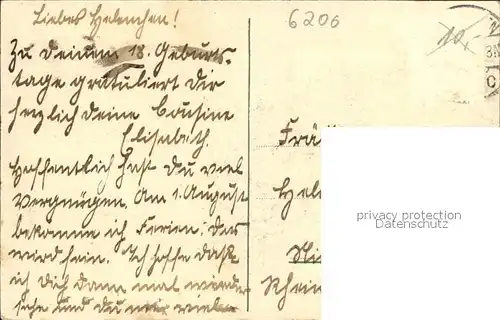 Liebes Helenchen!
Zu deinem 18. Geburts-
tage gratuliert dir
herzlich deine Cousine
Elisabeth.
Hoffentlich hast du viel
Vergnügen. Am 1. August
bekomme ich Ferien. Das
wird fein. Ich hoffe daß
ich dich dann mal wieder
sehe und du mir viel
6206
10,-
Frä
Hele
Rhein
privacy protection
Datenschutz